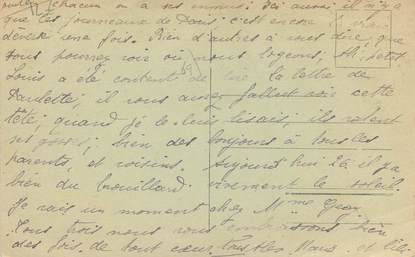 chacun a ses ennuis! Ici aussi il n'y a
que les journeaux de Paris c'est encore
une fois. Rien d'autres à vous dire, que
vous pourrez voir où nous logeons, Ah! petit
Louis a été content de lire la lettre de
Paulette, il vous aurez fallut voir cette
tête, quand je le lisais; ils
bien des bonjours à tous les
parents, et voisins. Aujourd'hui 26 il y a
bien du brouillard. vivement le soleil.
Je vais un moment chez Mme
Tous trois nous vous embrassons bien
des fois de tout cœur tous les Mans. et